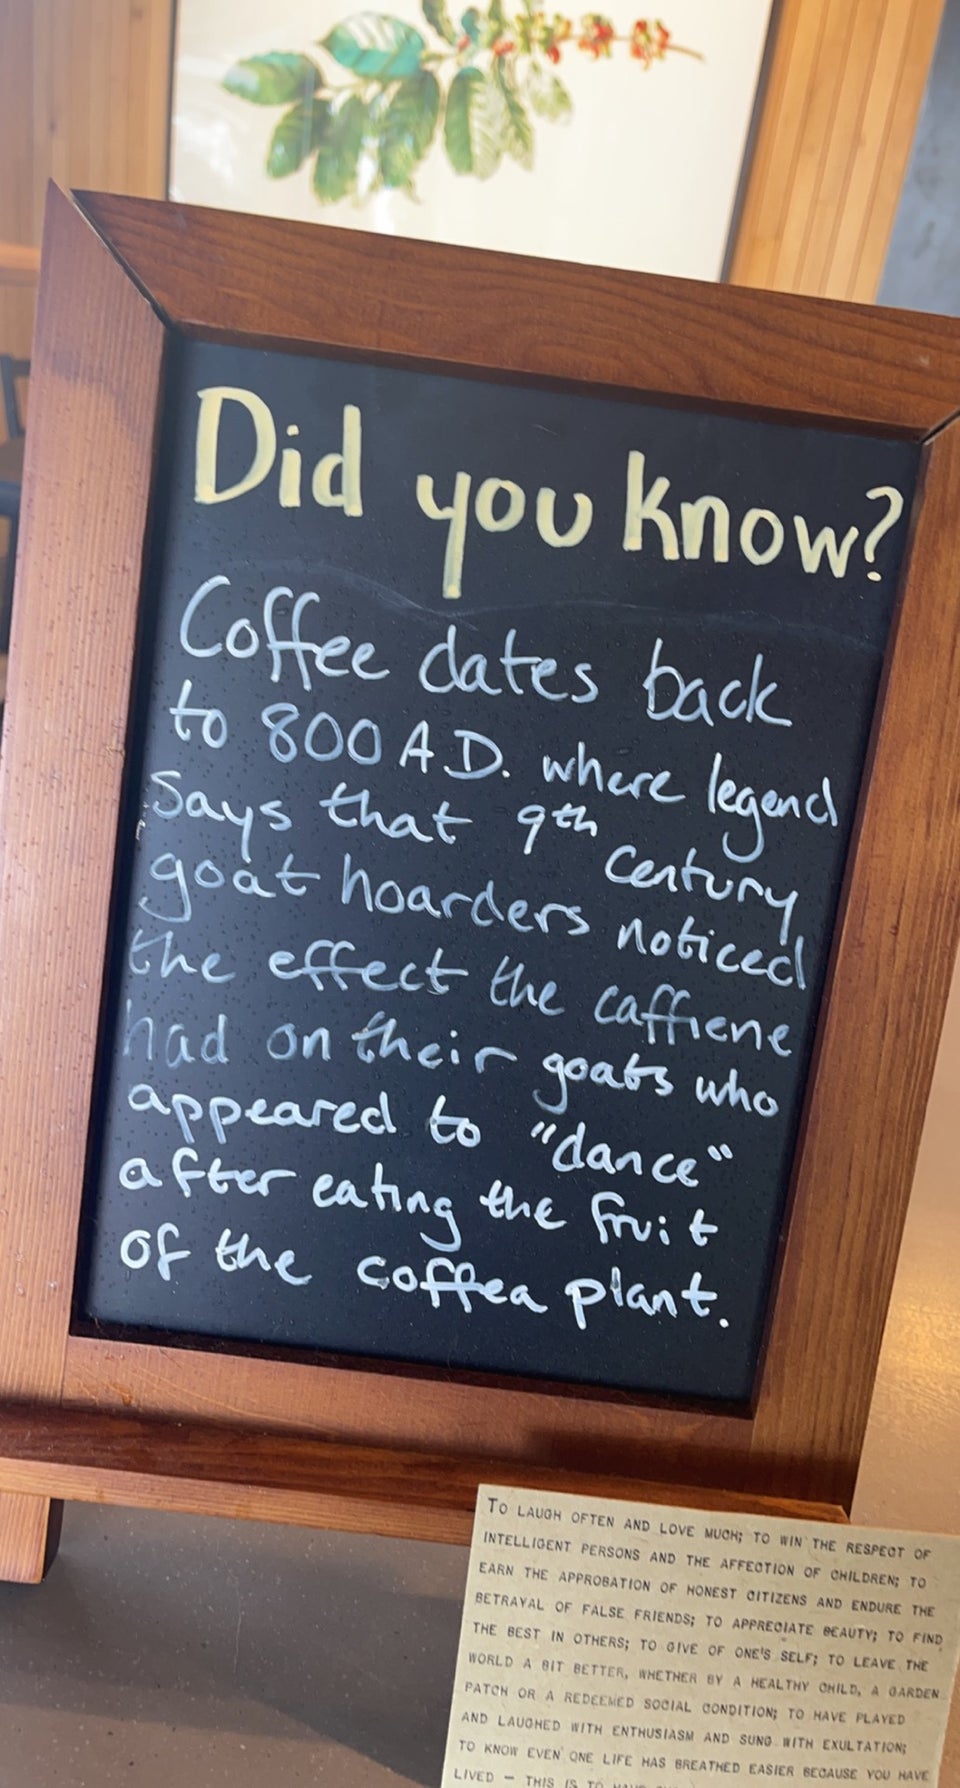 Did you know?
Coffee dates back
to 800 A.D. where legend
says that 9th century
goat hoarders noticed
the effect the caffiene
had on their goats who
appeared to "dance"
after eating the fruit
of the coffea plant.
TO LAUGH OFTEN AND LOVE MUCH; TO WIN THE RESPECT OF
INTELLIGENT PERSONS AND THE AFFECTION OF CHILDREN; TO
EARN THE APPROBATION OF HONEST CITIZENS AND ENDURE THE
BETRAYAL OF FALSE FRIENDS; TO APPRECIATE BEAUTY; TO FIND
THE BEST IN OTHERS; TO GIVE OF ONE'S SELF; TO LEAVE THE
WORLD A BIT BETTER, WHETHER BY A HEALTHY CHILD, A GARDEN
PATCH OR A REDEEMED SOCIAL CONDITION; TO HAVE PLAYED
AND LAUGHED WITH ENTHUSIASM AND SUNG WITH EXULTATION;
TO KNOW EVEN ONE LIFE HAS BREATHED EASIER BECAUSE YOU HAVE
LIVED — THIS IS TO